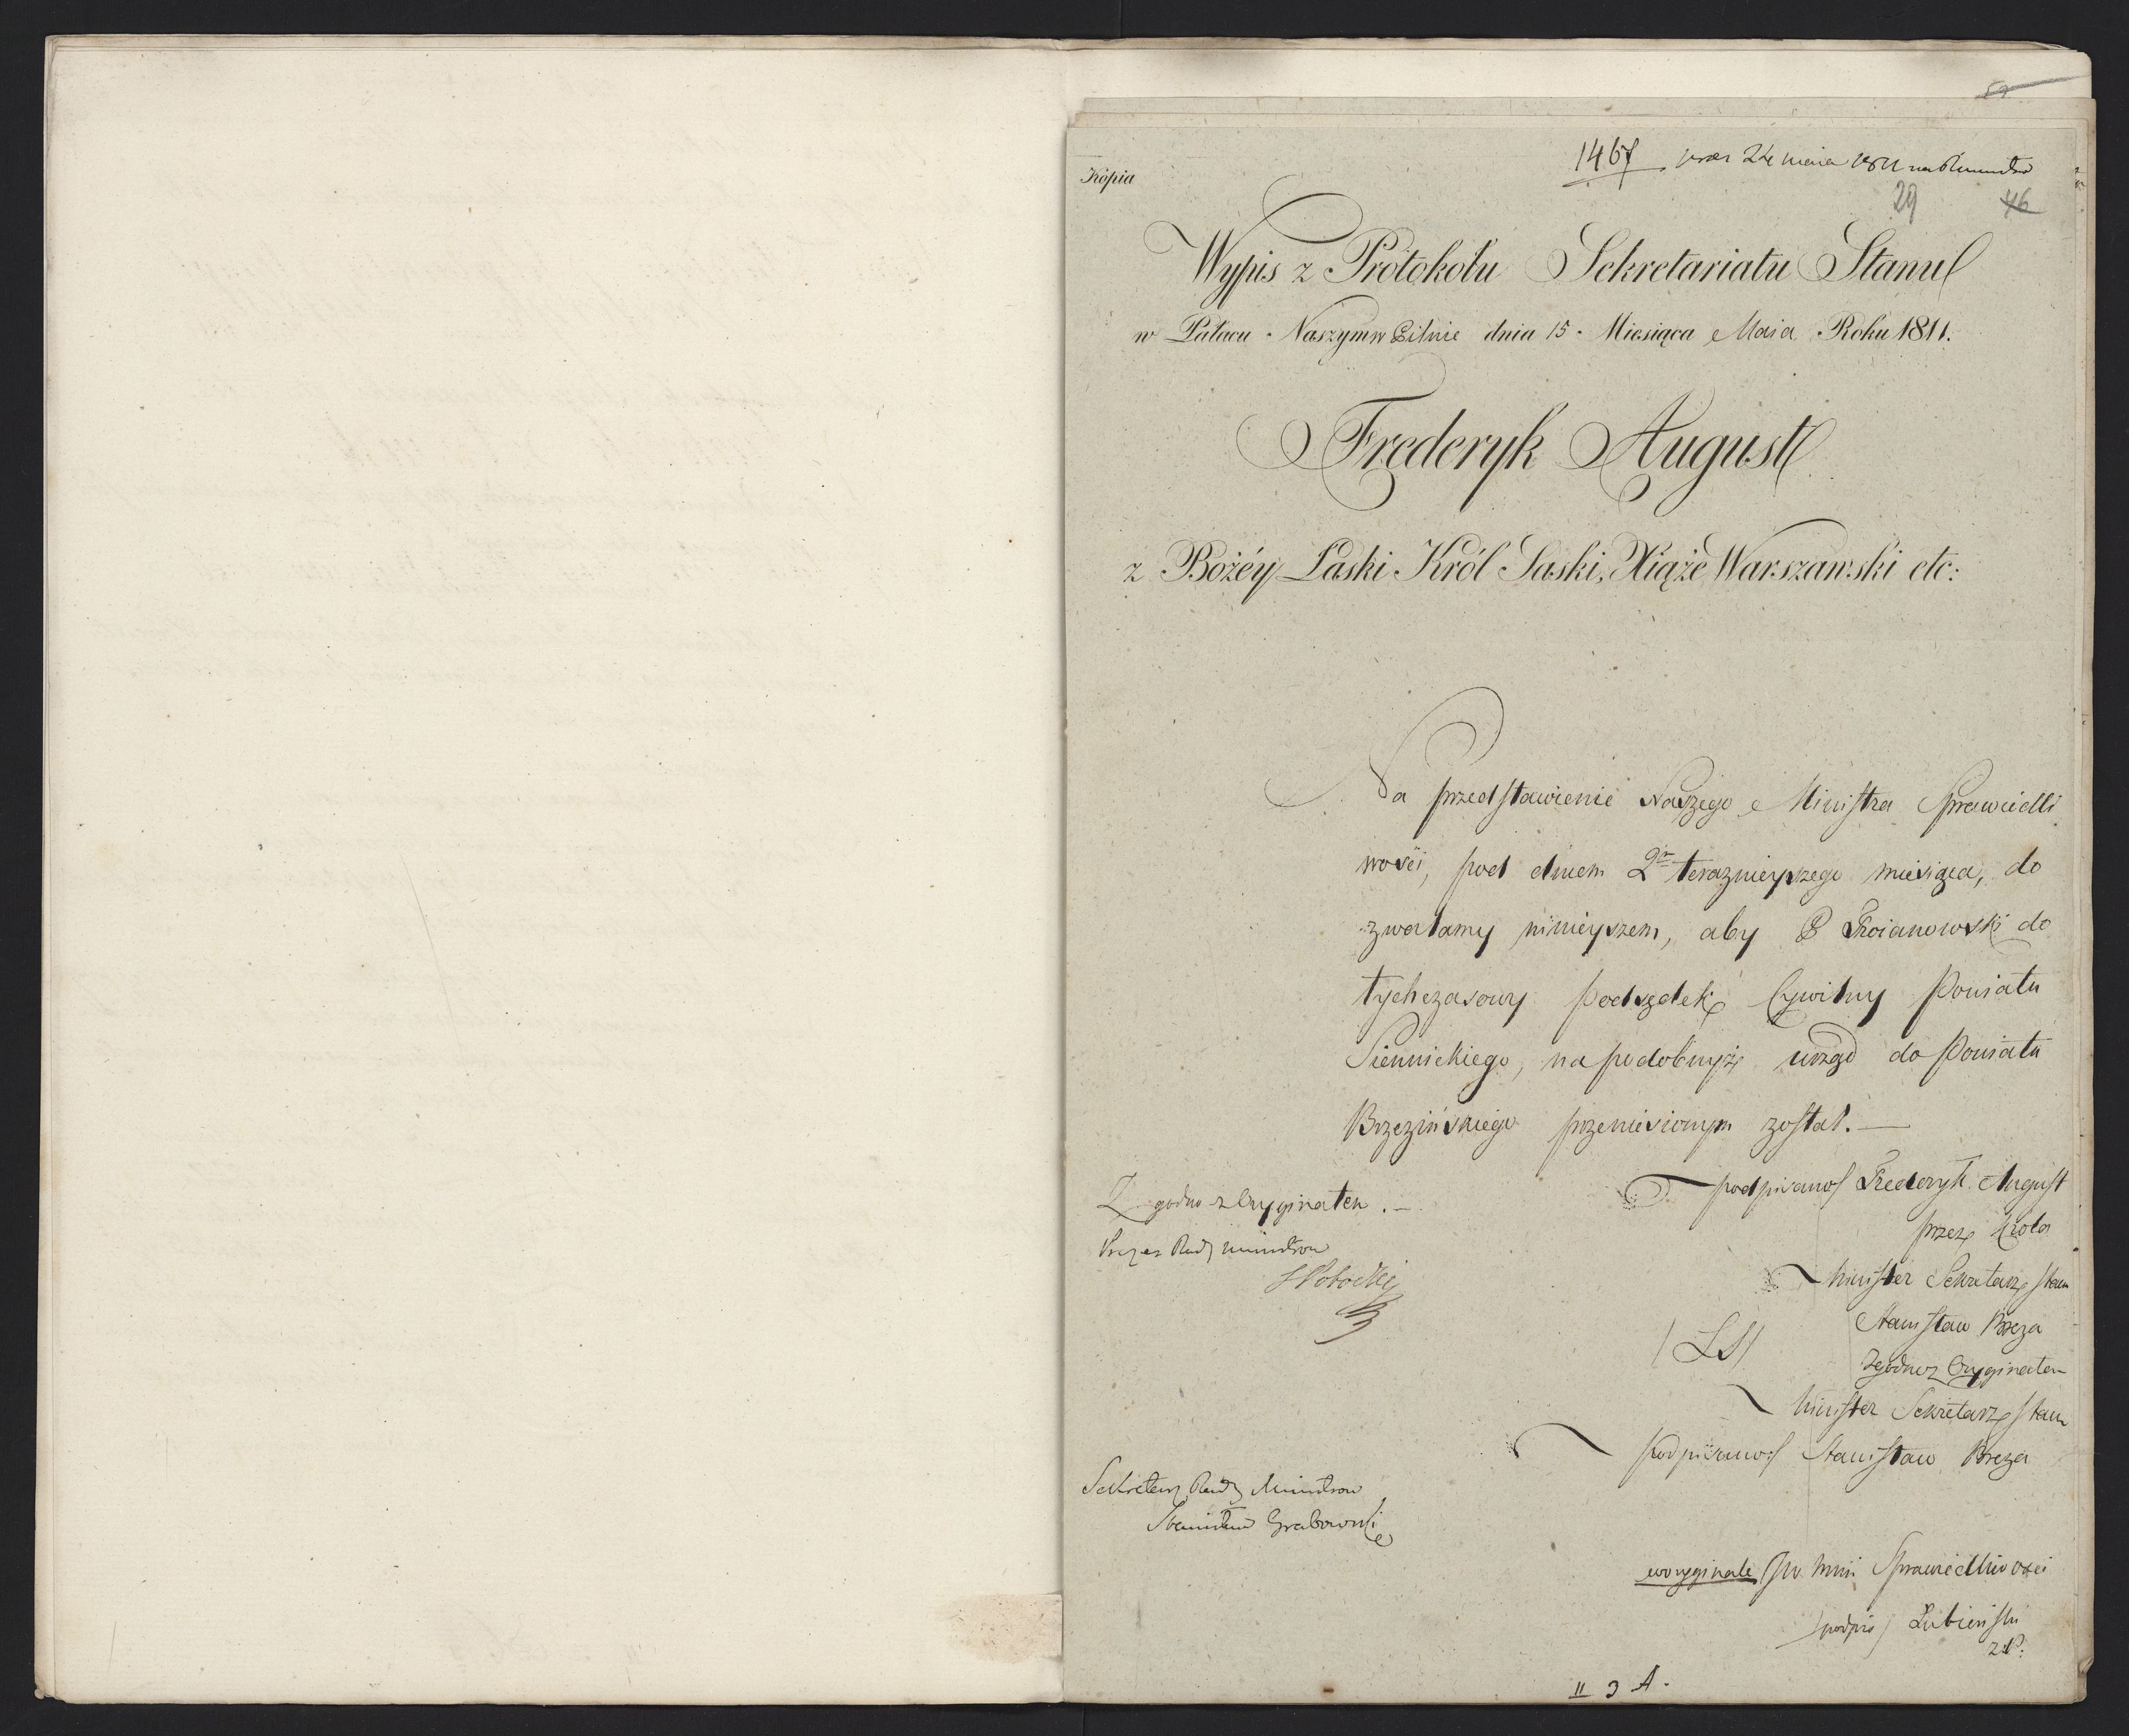 Kopia
1467 24 maia 1811
29 46
Wypis z Protokołu Sekretariatu Stanu
w Pałacu Naszym w Pilnie dnia 15. Miesiąca Maia Roku 1811.
Frederyk August
z Bożéy Łaski Król Saski, Xiąże Warszawski etc:
Na przedstawienie Naszego Ministra Sprawiedli
wości, pod dniem 2. teraznieyszego miesiąca, do
zwalamy ninieyszem, aby P Troianowski do
tychczasowy Podsędek Cywilny Powiatu
Siennickiego, na podobnyż urząd do Powiatu
Brzezińskiego przeniesionym został. —
podpisano/ Frederyk August
przez Króla
Minister Sekretarz Stanu
Stanisław Breza
/LS/
Zgodno z Oryginałem
Minister Sekretarz Stanu
podpisano/ Stanisław Breza
Zgodno z Oryginałem. —
Prezes Rady Ministrow
S Potocki
Sekretarz Rady Ministrow
Stanisław Grabowski
w oryginale JW. Mini Sprawiedliwości
/podpis/ Łubieński
II 3 A.